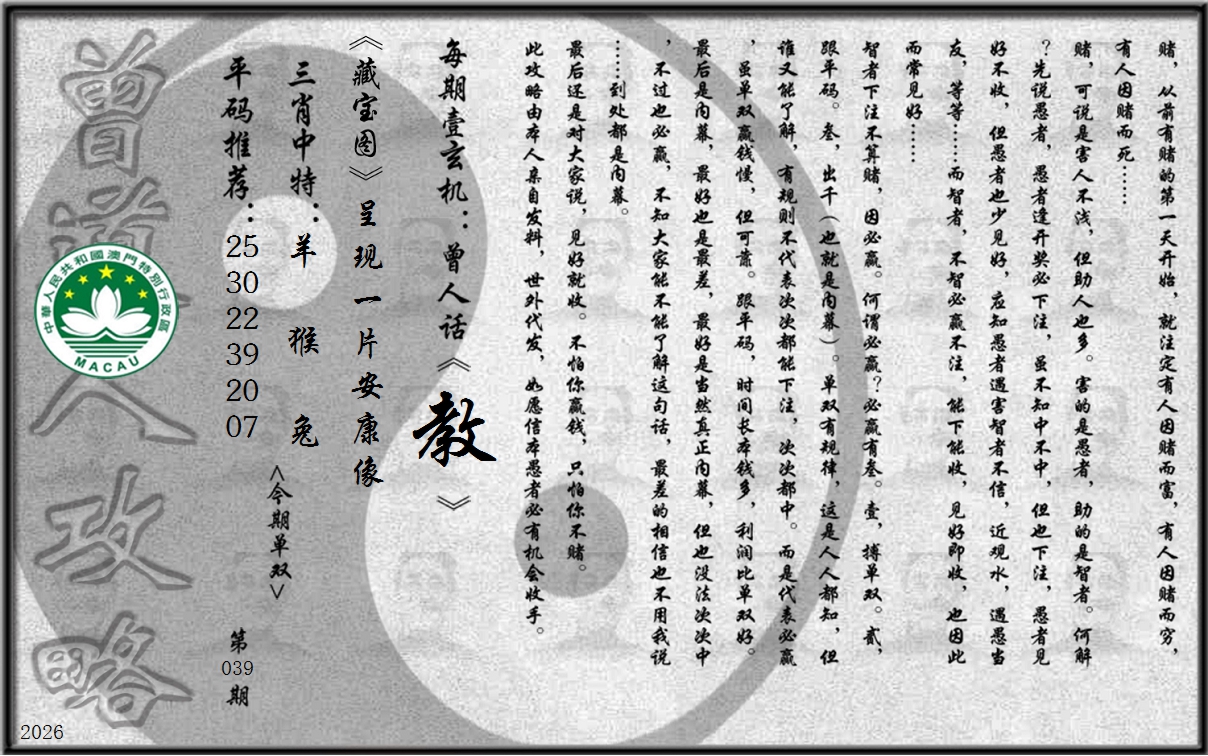 赌，从前有赌的第一天开始，就注定有人因赌而富，有人因赌而穷，
有人因赌而死……
赌，可说是害人不浅，但助人也多。害的是愚者，助的是智者。何解
？先说愚者，愚者逢开奖必下注，虽不知中不中，但也下注，愚者见
好不收，但愚者也少见好，应知愚者遇害智者不信，近观水，遇愚当
友，等等……而智者，不智必赢不注，能下能收，见好即收，也因此
而常见好……
智者下注不算赌，因必赢。何谓必赢？必赢有叁。壹，搏单双。贰，
跟平码。叁，出千（也就是内幕）。单双有规律，这是人人都知，但
谁又能了解，有规则不代表次次都能下注，次次都中。而是代表必赢
，虽单双赢钱慢，但可靠。跟平码，时间长本钱多，利润比单双好。
最后是内幕，最好也是最差，最好是当然真正内幕，但也没法次次中
，不过也必赢，不知大家能不能了解这句话，最差的相信也不用我说
……到处都是内幕。
最后还是对大家说，见好就收。不怕你赢钱，只怕你不赌。
此攻略由本人亲自发料，世外代发，如愿信本愚者必有机会收手。
每期壹玄机：曾人话《教》
《藏宝图》呈现一片安康像
三肖中特：羊 猴 兔
<今期单双>
平码推荐：25 30 22 39 20 07
第039期
曾道人攻略
中華人民共和國澳門特別行政區
MACAU
2026